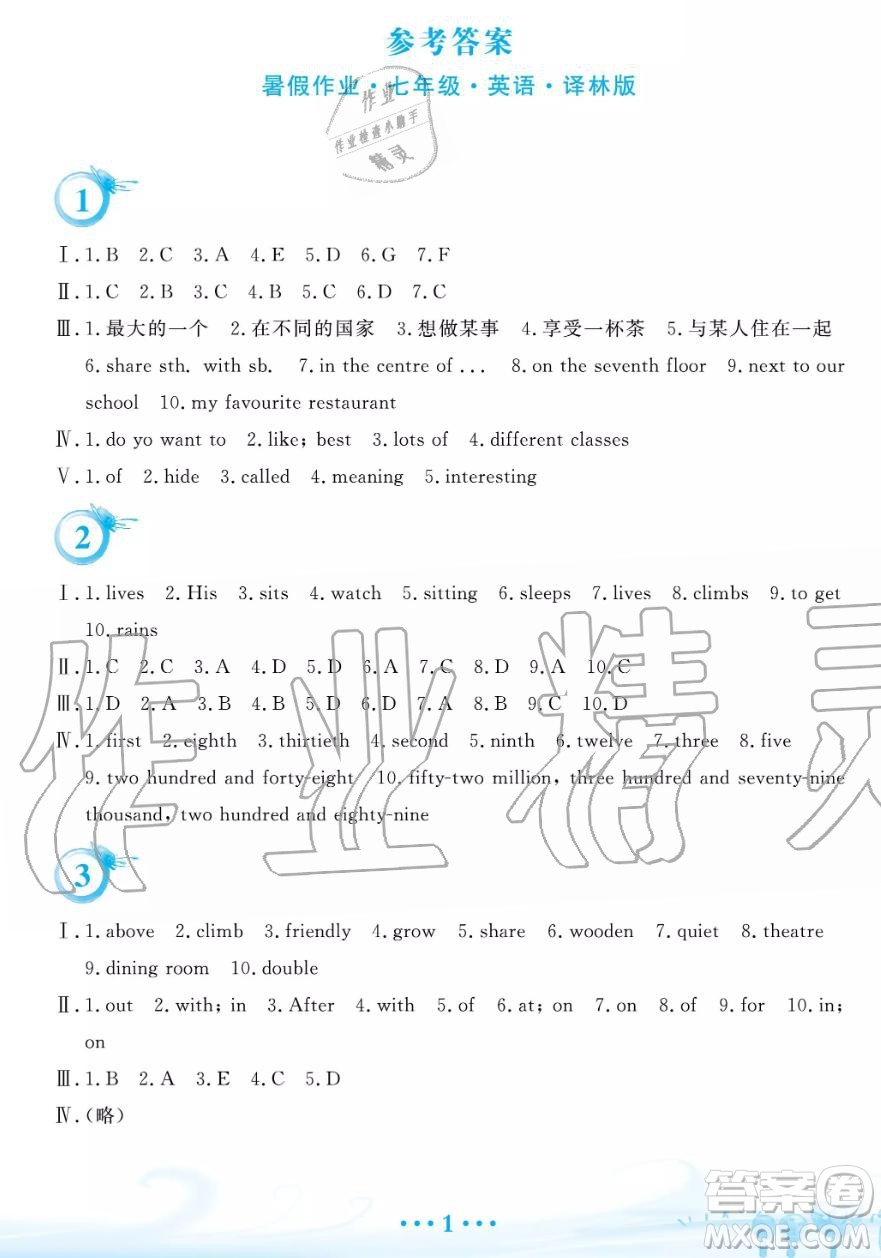 参考答案
暑假作业·七年级·英语·译林版
作业
作业检查小助手
精灵
1
Ⅰ.1.B 2.C 3.A 4.E 5.D 6.G 7.F
Ⅱ.1.C 2.B 3.C 4.B 5.C 6.D 7.C
Ⅲ.1.最大的一个 2.在不同的国家 3.想做某事 4.享受一杯茶 5.与某人住在一起
6.share sth. with sb. 7.in the centre of ... 8.on the seventh floor 9.next to our
school 10.my favourite restaurant
Ⅳ.1.do yo want to 2.like; best 3.lots of 4.different classes
Ⅴ.1.of 2.hide 3.called 4.meaning 5.interesting
2
Ⅰ.1.lives 2.His 3.sits 4.watch 5.sitting 6.sleeps 7.lives 8.climbs 9.to get
10.rains
Ⅱ.1.C 2.C 3.A 4.D 5.D 6.A 7.C 8.D 9.A 10.C
Ⅲ.1.D 2.A 3.B 4.B 5.D 6.D 7.A 8.B 9.C 10.D
Ⅳ.1.first 2.eighth 3.thirtieth 4.second 5.ninth 6.twelve 7.three 8.five
9.two hundred and forty-eight 10.fifty-two million, three hundred and seventy-nine
thousand, two hundred and eighty-nine
作业精灵
3
Ⅰ.1.above 2.climb 3.friendly 4.grow 5.share 6.wooden 7.quiet 8.theatre
9.dining room 10.double
Ⅱ.1.out 2.with; in 3.After 4.with 5.of 6.at; on 7.on 8.of 9.for 10.in;
on
Ⅲ.1.B 2.A 3.E 4.C 5.D
Ⅳ.(略)
1
答案圈
MXQE.COM